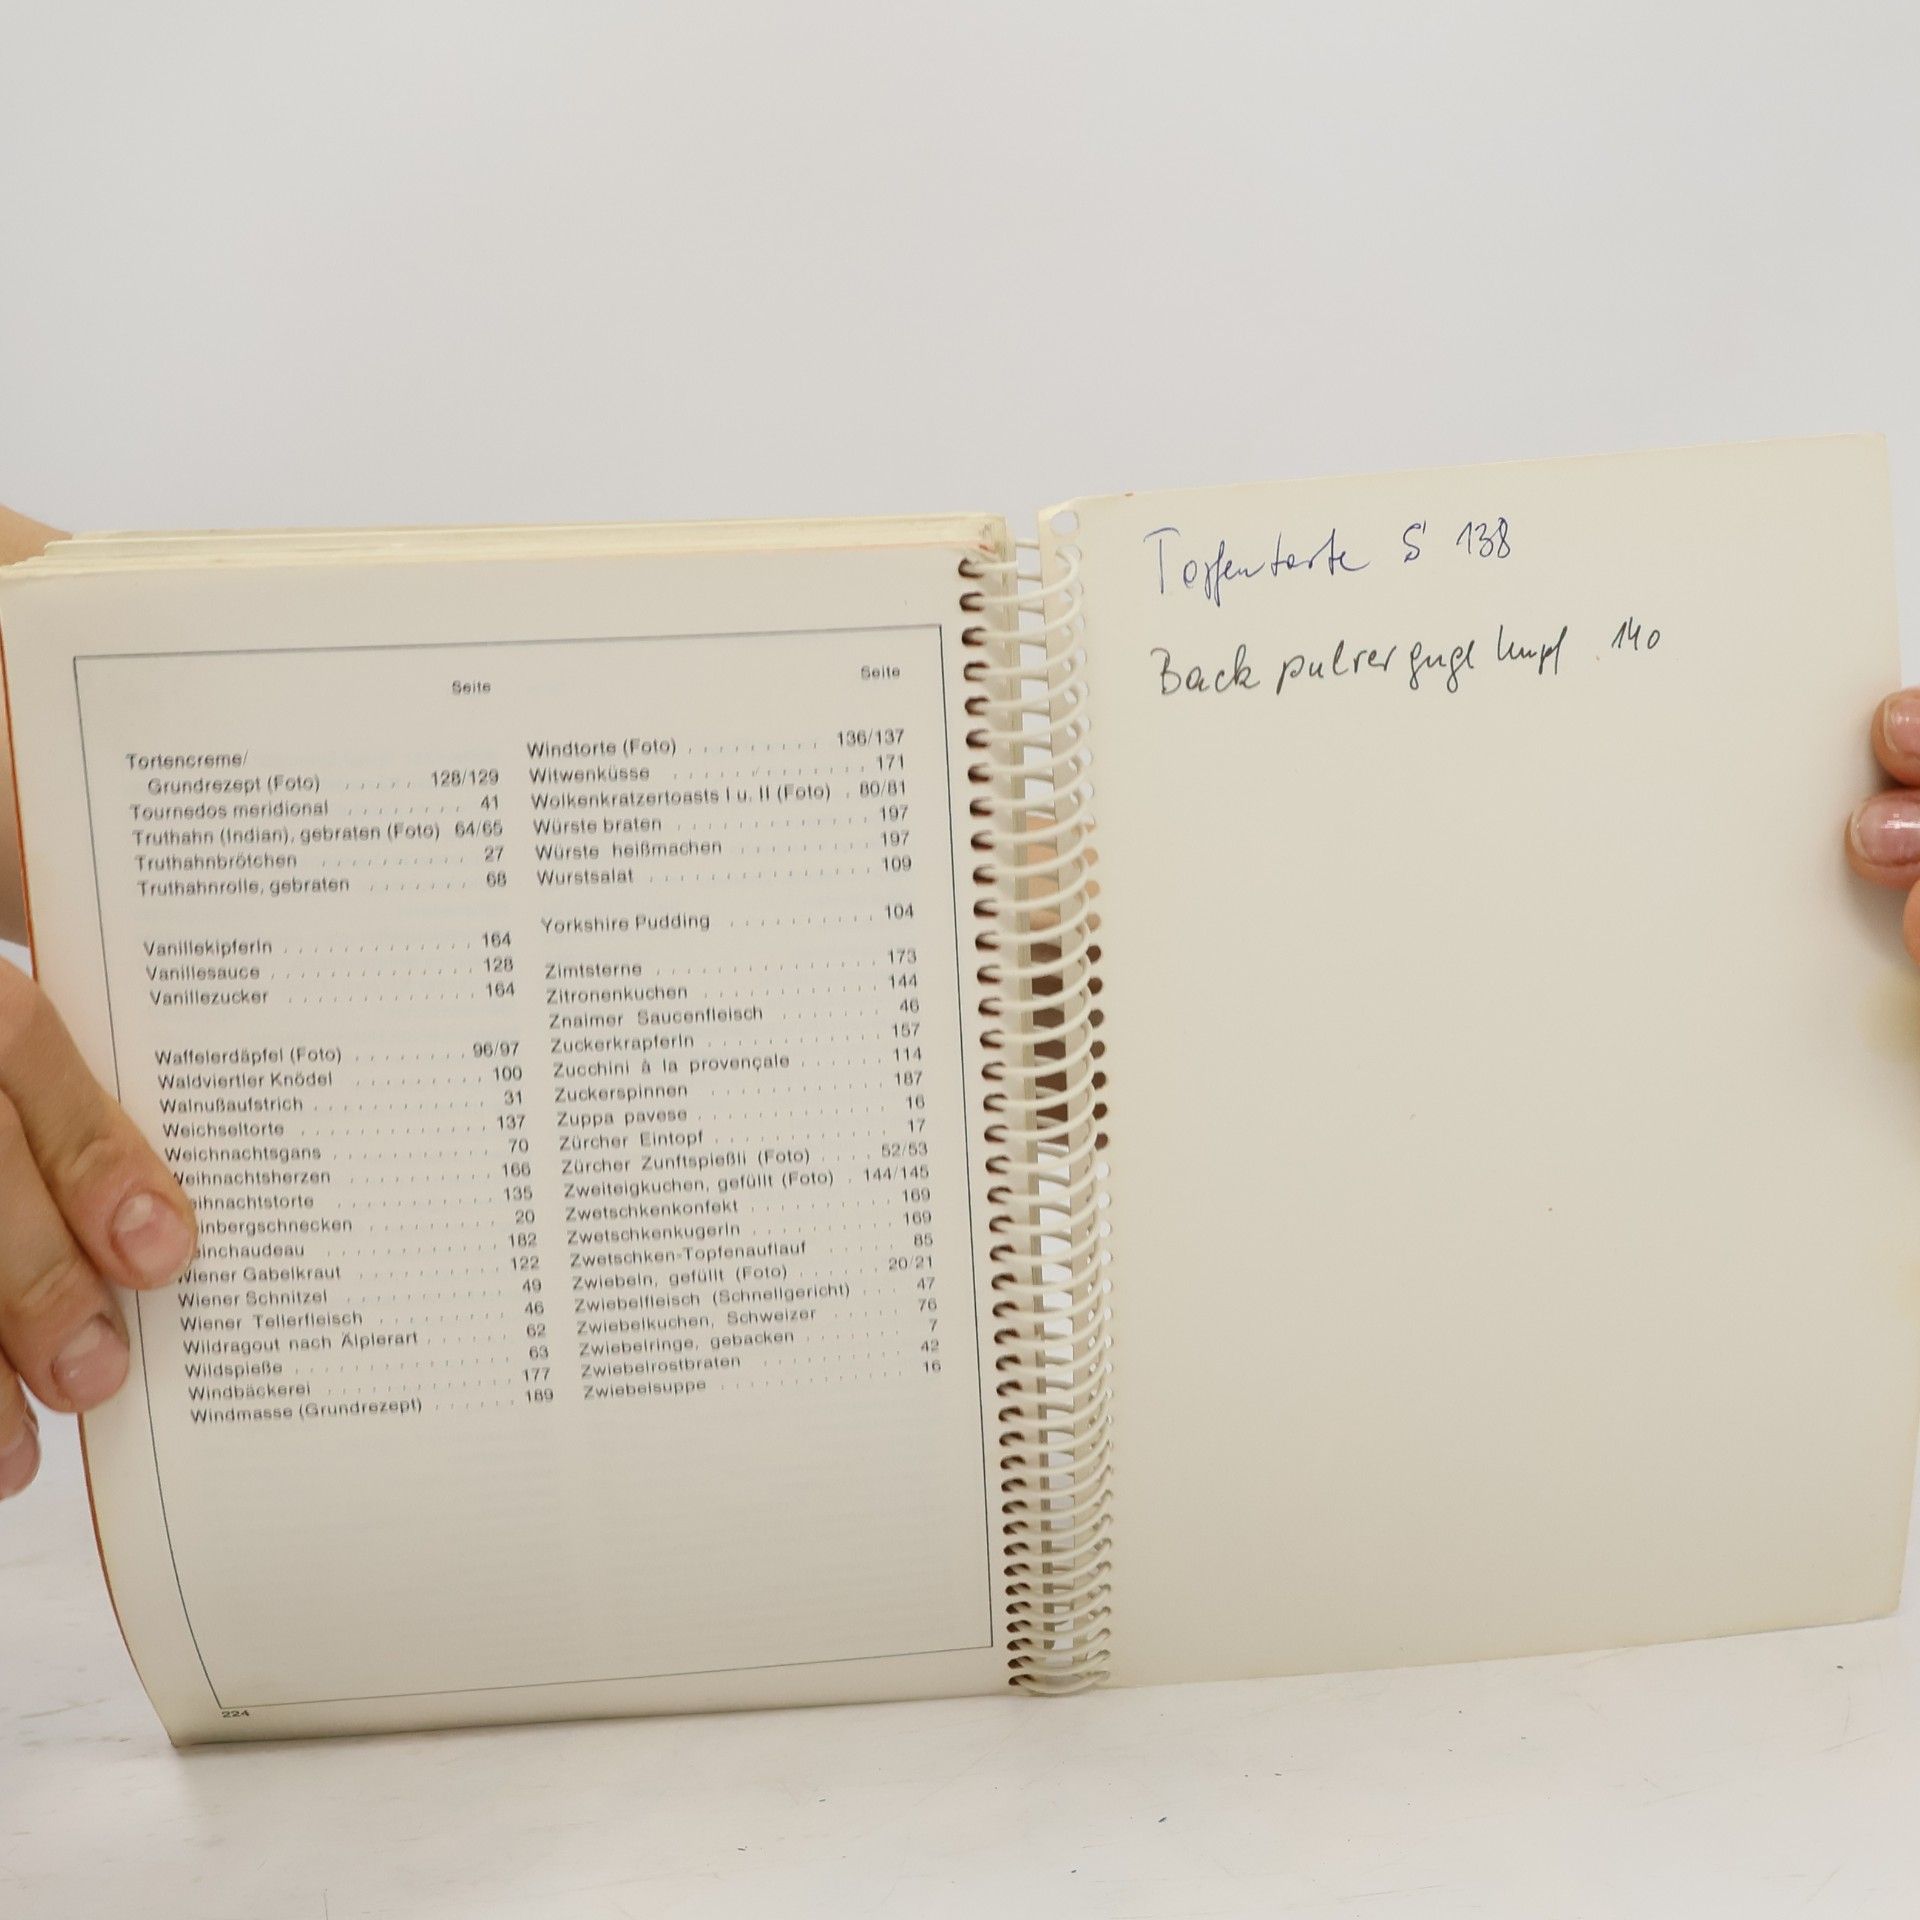 Seite
Tortencreme/
Grundrezept (Foto) ..... 128/129
Tournedos meridional ........ 41
Truthahn (Indian), gebraten (Foto) 64/65
Truthahnbrötchen .......... 27
Truthahnrolle, gebraten ....... 68
Vanillekipferln ............. 164
Vanillesauce .............. 128
Vanillezucker ............. 164
Waffelerdäpfel (Foto) ........ 96/97
Waldviertler Knödel ......... 100
Walnußaufstrich ............ 31
Weichseltorte ............ 137
Weichnachtsgans ........... 70
Weihnachtsherzen .......... 166
eihnachtstorte ........... 135
inbergschnecken ......... 20
einchaudeau ........... 182
Wiener Gabelkraut ......... 122
Wiener Schnitzel .......... 49
Wiener Tellerfleisch ........ 46
Wildragout nach Älplerart ...... 62
Wildspieße .............. 63
Windbäckerei ............ 177
Windmasse (Grundrezept) ...... 189
Seite
Windtorte (Foto) ......... 136/137
Witwenküsse ............ 171
Wolkenkratzertoasts I u. II (Foto) . 80/81
Würste braten ............ 197
Würste heißmachen ......... 197
Wurstsalat .............. 109
Yorkshire Pudding .......... 104
Zimtsterne .............. 173
Zitronenkuchen ........... 144
Znaimer Saucenfleisch ....... 46
Zuckerkrapferln ........... 157
Zucchini à la provençale ...... 114
Zuckerspinnen ........... 187
Zuppa pavese ............ 16
Zürcher Eintopf ........... 17
Zürcher Zunftspießli (Foto) .... 52/53
Zweiteigkuchen, gefüllt (Foto) . 144/145
Zwetschkenkonfekt ......... 169
Zwetschkenkugerln ......... 169
Zwetschken-Topfenauflauf ..... 85
Zwiebeln, gefüllt (Foto) ...... 20/21
Zwiebelfleisch (Schnellgericht) ... 47
Zwiebelkuchen, Schweizer .... 76
Zwiebelringe, gebacken ....... 7
Zwiebelrostbraten ......... 42
Zwiebelsuppe ............ 16
224
Topfentorte S 138
Back pulver gugl hupf . 140